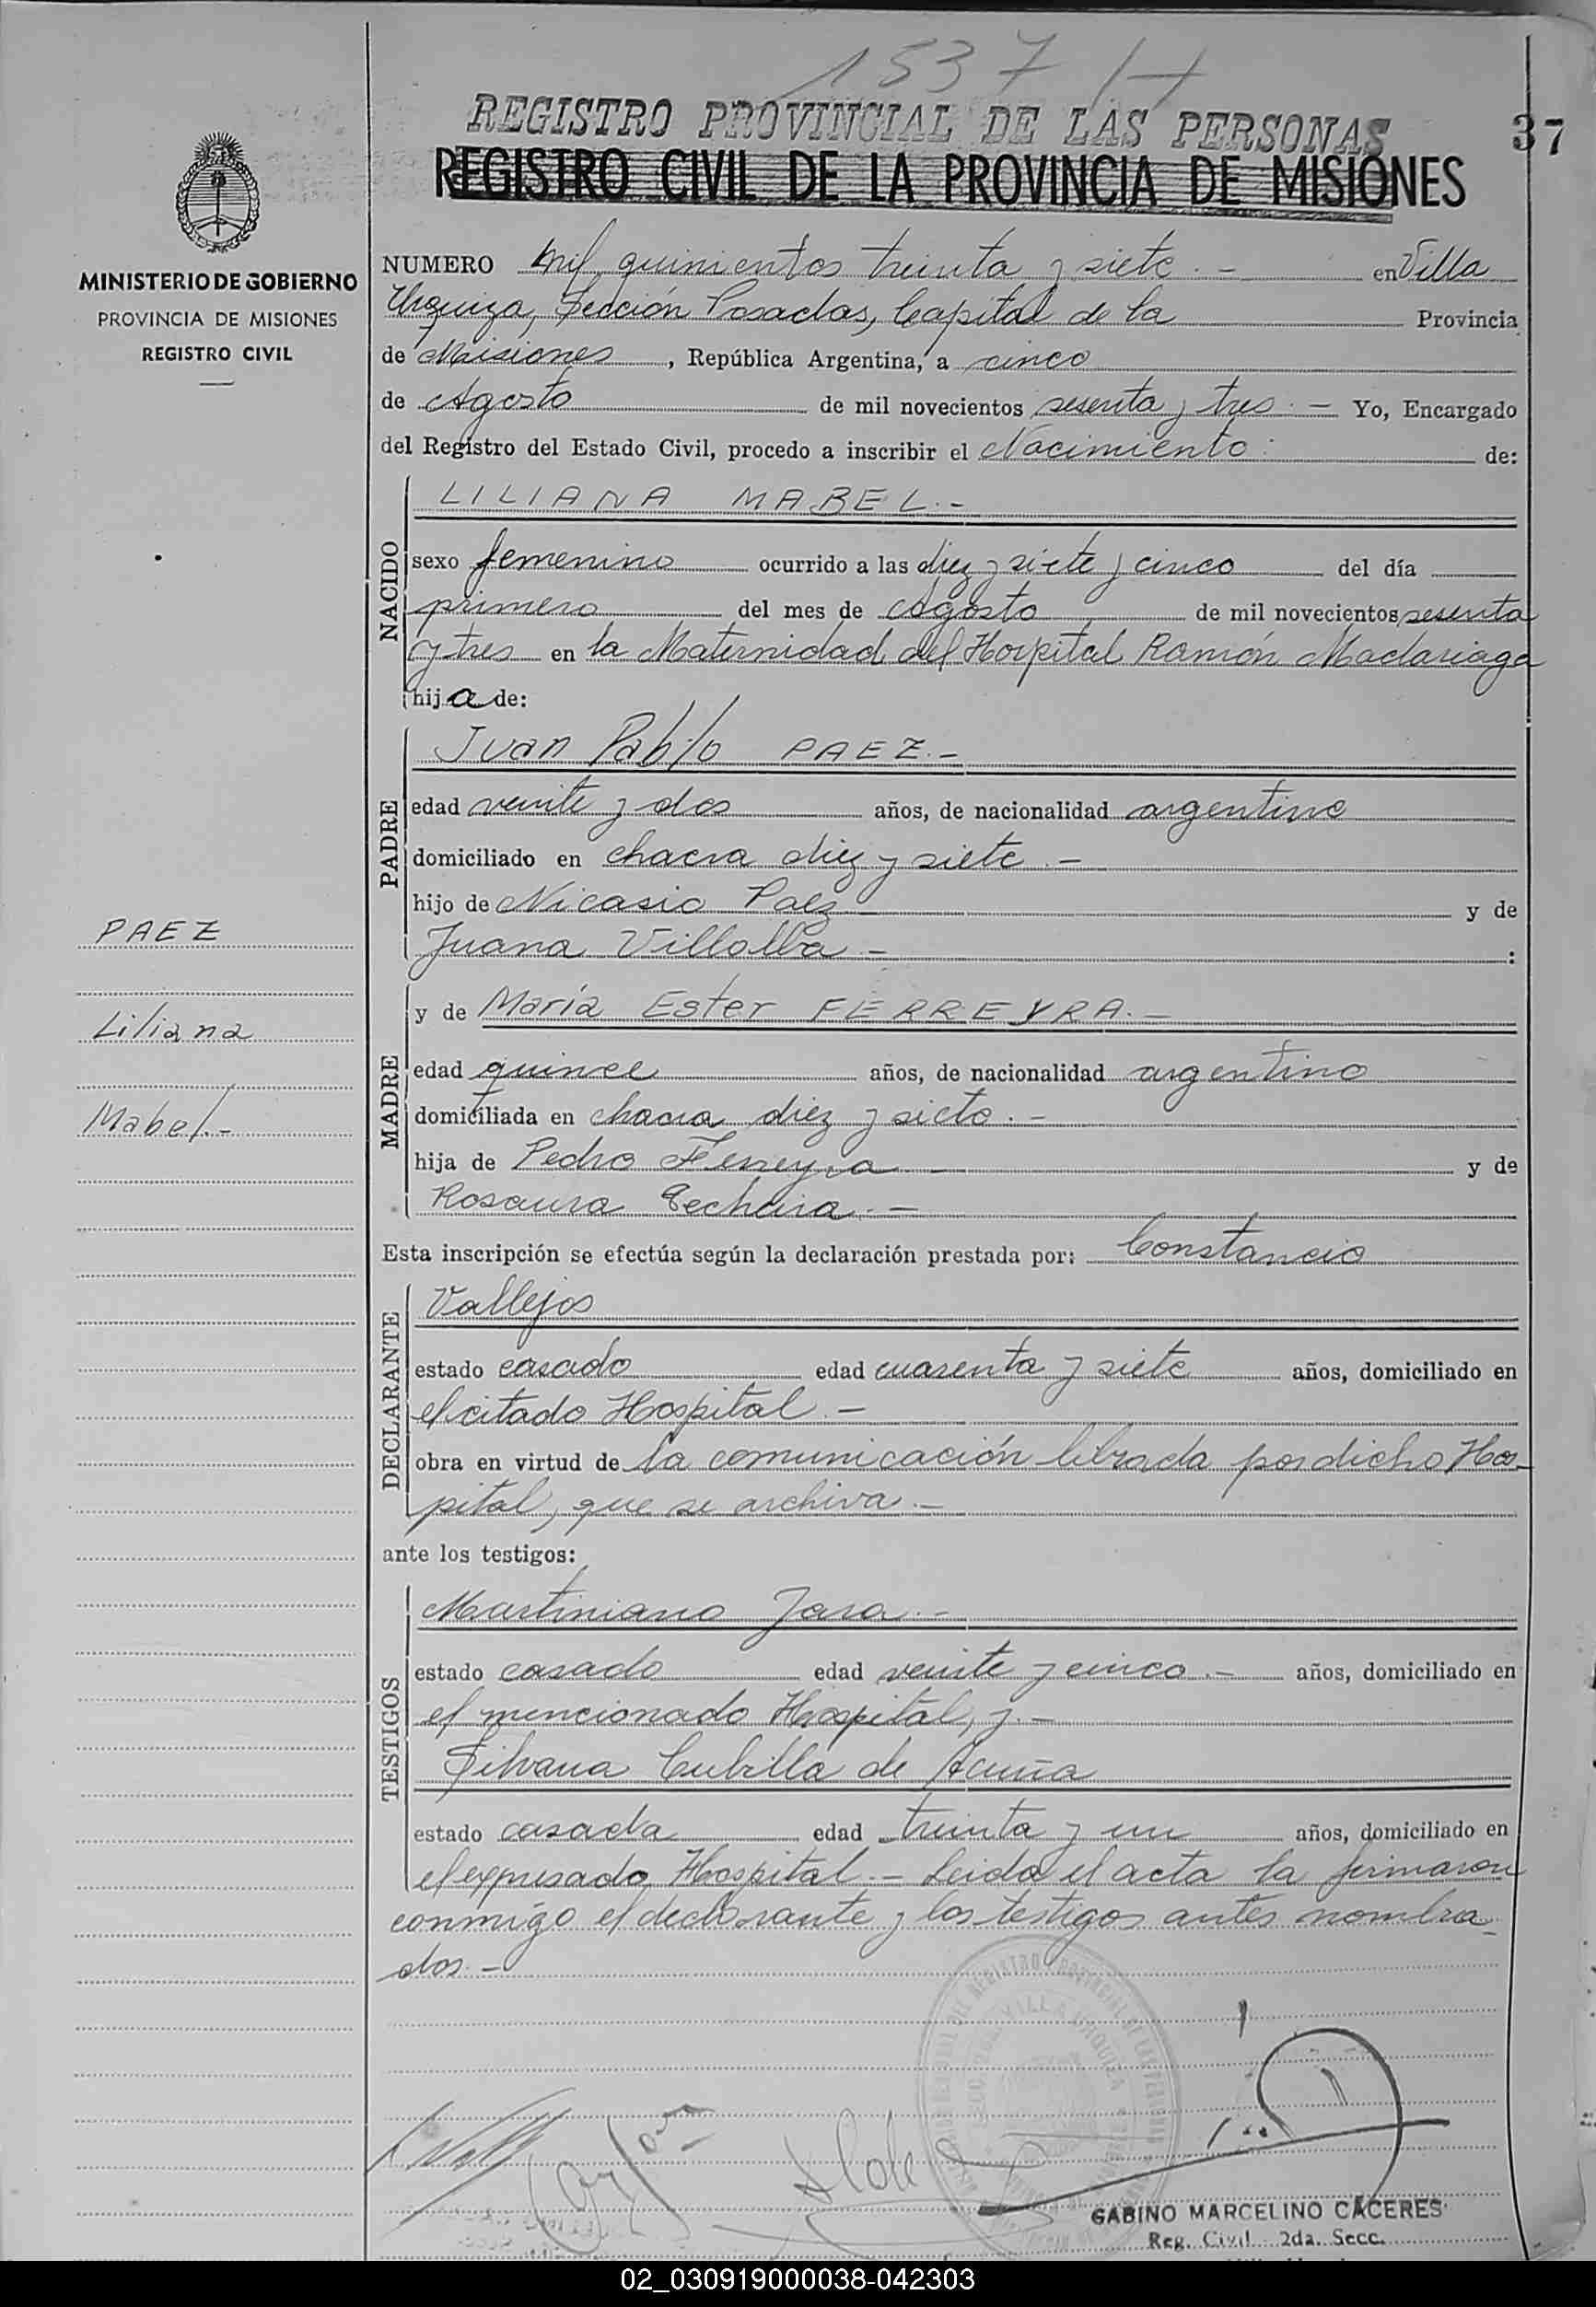 1537
REGISTRO PROVINCIAL DE LAS PERSONAS
37
REGISTRO CIVIL DE LA PROVINCIA DE MISIONES
MINISTERIO DE GOBIERNO
PROVINCIA DE MISIONES
REGISTRO CIVIL
NUMERO Mil quinientos treinta y siete.- en Villa
Urquiza, Sección Posadas, Capital de la Provincia
de Misiones, República Argentina, a cinco
de Agosto de mil novecientos sesenta y tres.- Yo, Encargado
del Registro del Estado Civil, procedo a inscribir el Nacimiento: de:
NACIDO
LILIANA MABEL.-
sexo femenino ocurrido a las diez y siete y cinco del día
primero del mes de Agosto de mil novecientos sesenta
y tres en la Maternidad del Hospital Ramón Madariaga
hija de:
PADRE
Juan Pablo PAEZ.-
edad veinte y dos años, de nacionalidad argentino
domiciliado en chacra diez y siete.-
hijo de Nicasio Paez y de
Juana Villalba-:
MADRE
y de María Ester FERREYRA.-
edad quince años, de nacionalidad argentino
domiciliada en chacra diez y siete.-
hija de Pedro Ferreyra- y de
Rosaura
PAEZ
Liliana
Mabel.-
Esta inscripción se efectúa según la declaración prestada por: Constancio
DECLARANTE
Vallejos
estado casado edad cuarenta y siete años, domiciliado en
el citado Hospital.-
obra en virtud de la comunicación librada por dicho Hos-
pital, que se archiva.-
ante los testigos:
TESTIGOS
Martiniano Jara.-
estado casado edad veinte y cinco.- años, domiciliado en
el mencionado Hospital, y.-
Silvana Cubilla de Acuña
estado casada edad treinta y un años, domiciliado en
el expresado Hospital.- Leida el acta la firmaron
conmigo el declarante y los testigos antes nombra-
dos.-
GABINO MARCELINO CÁCERES
Reg. Civil 2da. Secc.
02_030919000038-042303